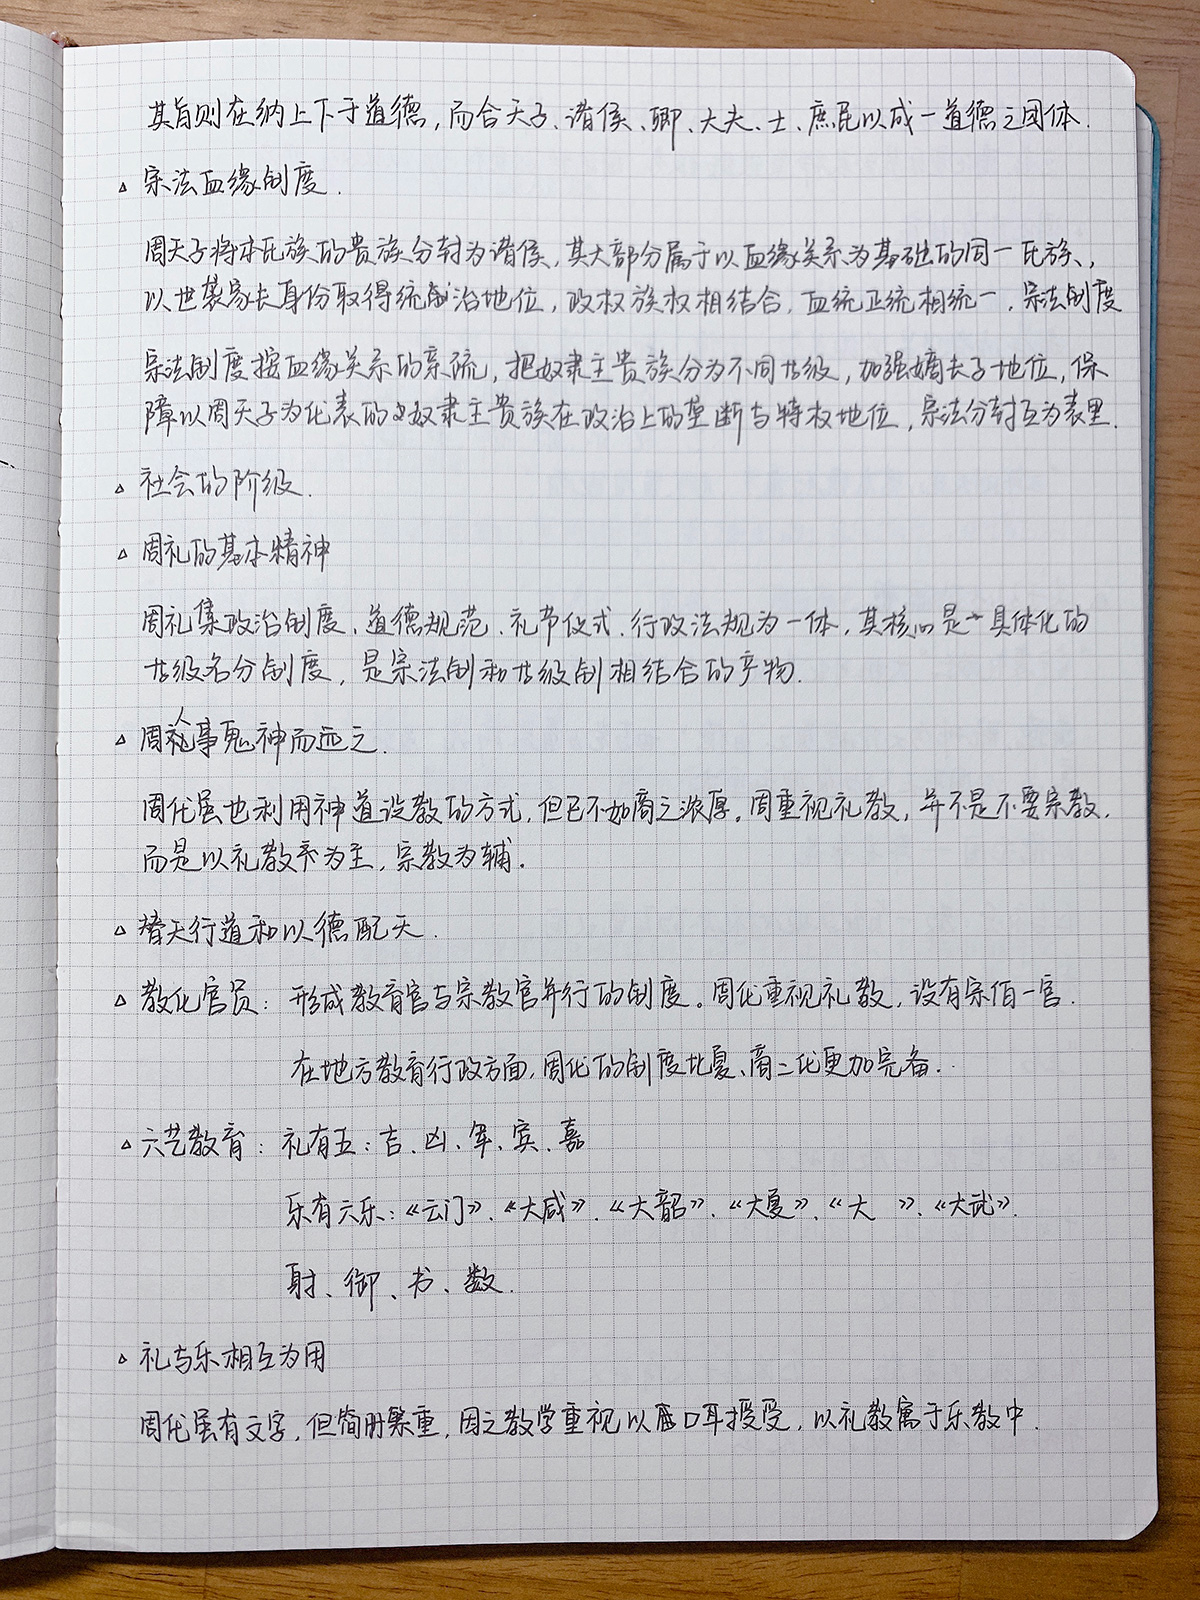 其旨则在纳上下于道德，而合天子、诸侯、卿、大夫、士、庶民以成一道德之团体．
△ 宗法血缘制度．
周天子将本氏族的贵族分封为诸侯，其大部分属于以血缘关系为基础的同一氏族，
以世袭家长身份取得统治地位，政权族权相结合，血统正统相统一．宗法制度
宗法制度按血缘关系的亲疏，把奴隶主贵族分为不同等级，加强嫡长子地位，保
障以周天子为代表的奴隶主贵族在政治上的垄断与特权地位，宗法分封互为表里．
△ 社会的阶级．
△ 周礼的基本精神
周礼集政治制度、道德规范、礼节仪式、行政法规为一体，其核心是个具体化的
等级名分制度，是宗法制和等级制相结合的产物．
△ 周人事鬼神而远之．
周代虽也利用神道设教的方式，但已不如商之浓厚。周重视礼教，并不是不要宗教，
而是以礼教为主，宗教为辅。
△ 替天行道和以德配天．
△ 教化官员：形成教育官与宗教官并行的制度。周代重视礼教，设有宗伯一官．
在地方教育行政方面，周代的制度比夏、商二代更加完备．
△ 六艺教育：礼有五：吉、凶、军、宾、嘉
乐有六乐：《云门》、《大咸》、《大韶》、《大夏》、《大 》、《大武》．
射、御、书、数．
△ 礼与乐相互为用
周代虽有文字，但简册繁重，因之教学重视以口耳授受，以礼教寓于乐教中．